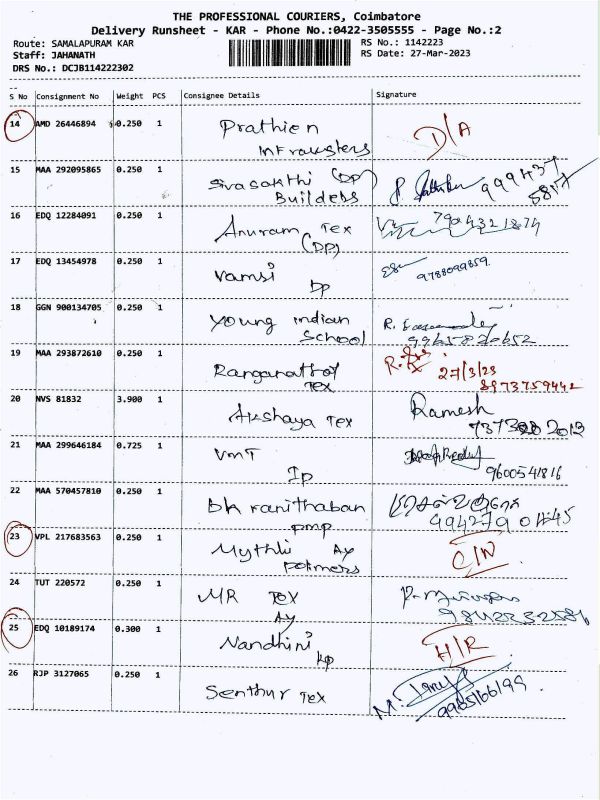 THE PROFESSIONAL COURIERS, Coimbatore
Delivery Runsheet - KAR - Phone No.:0422-3505555 - Page No.:2
Route: SAMALAPURAM KAR RS No.: 1142223
Staff: JAHANATH RS Date: 27-Mar-2023
DRS No.: DCJB114222302
S No Consignment No Weight PCS Consignee Details Signature
14 AMD 26446894 0.250 1 Prathien D/A
Infrawsters
15 MAA 292095865 0.250 1 Sivasakthi (DP) 999437
Builders 5817
16 EDQ 12284091 0.250 1 Anuram Tex 7904321874
(DP)
17 EDQ 13454978 0.250 1 Vamsi 9788099859
DP
18 GGN 900134705 0.250 1 Young indian R.
School 9965820652
19 MAA 293872610 0.250 1 Ranganathar R. 27/3/23
Tex 8973759442
20 NVS 81832 3.900 1 Akshaya Tex Ramesh
2013
21 MAA 299646184 0.725 1 VMT
Ip 9600541816
22 MAA 570457810 0.250 1 bk ranithaban
pmp 99427901445
23 VPL 217683563 0.250 1 Mythli Ay C/N
Polimers
24 TUT 220572 0.250 1 MR Tex
Ay 9842232586
25 EDQ 10189174 0.300 1 Nandhini H/R
kp
26 RJP 3127065 0.250 1 Senthur Tex M.
9965166199